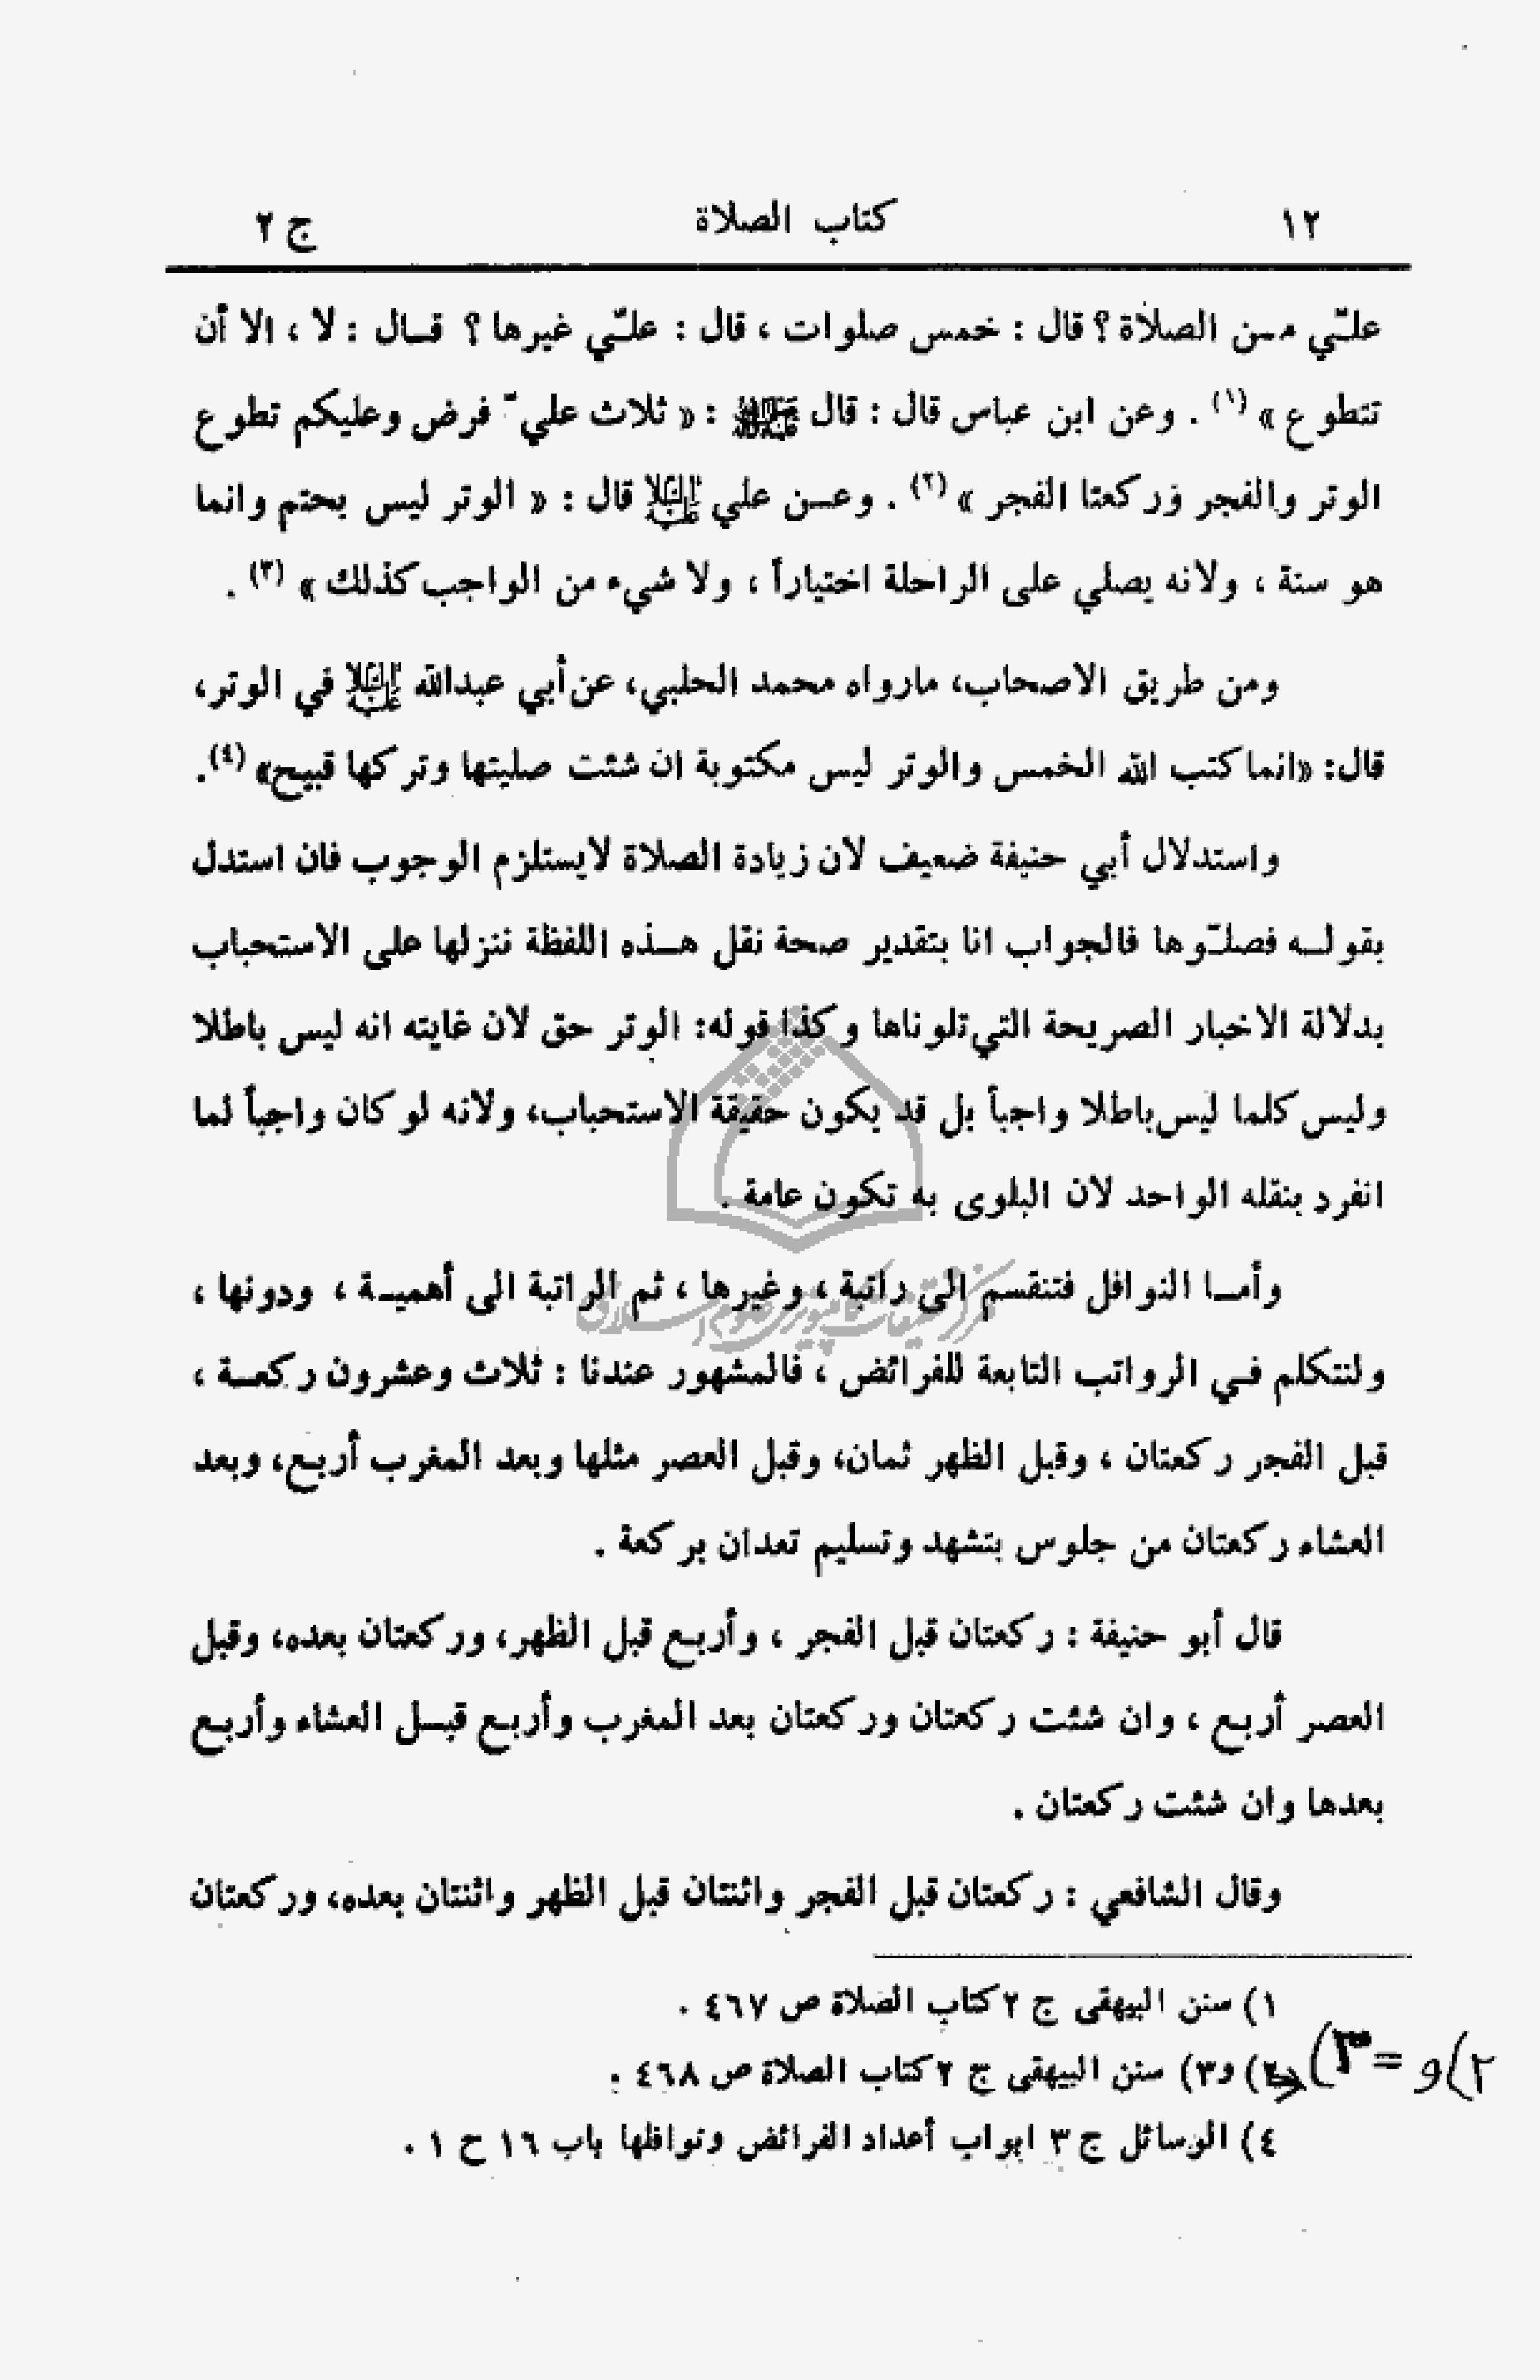 ١٢ كتاب الصلاة ج ٢
علـّي مـن الصلاة ؟ قال : خمس صلوات ، قال : علـّي غيرها ؟ قـال : لا ، الا أن
تتطوع » (١) . وعن ابن عباس قال : قال ﷺ : « ثلاث عليّ فرض وعليكم تطوع
الوتر والفجر وركعتا الفجر » (٢) . وعـن علي عليه السلام قال : « الوتر ليس بحتم وانما
هو سنة ، ولانه يصلي على الراحلة اختياراً ، ولا شيء من الواجب كذلك » (٣) .
ومن طريق الاصحاب، مارواه محمد الحلبي، عن أبي عبدالله عليه السلام في الوتر،
قال: «انما كتب الله الخمس والوتر ليس مكتوبة ان شئت صليتها وتركها قبيح» (٤).
واستدلال أبي حنيفة ضعيف لان زيادة الصلاة لايستلزم الوجوب فان استدل
بقولـه فصلـّوها فالجواب انا بتقدير صحة نقل هـذه اللفظة ننزلها على الاستحباب
بدلالة الاخبار الصريحة التي تلوناها وكذا قوله: الوتر حق لان غايته انه ليس باطلا
وليس كلما ليس باطلا واجباً بل قد يكون حقيقة الاستحباب، ولانه لو كان واجباً لما
انفرد بنقله الواحد لان البلوى به تكون عامة .
وأمـا النوافل فتنقسم الى راتبة ، وغيرها ، ثم الراتبة الى أهميـة ، ودونها ،
ولنتكلم فـي الرواتب التابعة للفرائض ، فالمشهور عندنا : ثلاث وعشرون ركعـة ،
قبل الفجر ركعتان ، وقبل الظهر ثمان، وقبل العصر مثلها وبعد المغرب أربع، وبعد
العشاء ركعتان من جلوس بتشهد وتسليم تعدان بركعة .
قال أبو حنيفة : ركعتان قبل الفجر ، وأربع قبل الظهر، وركعتان بعده، وقبل
العصر أربع ، وان شئت ركعتان وركعتان بعد المغرب وأربع قبـل العشاء وأربع
بعدها وان شئت ركعتان .
وقال الشافعي : ركعتان قبل الفجر واثنتان قبل الظهر واثنتان بعده، وركعتان
١) سنن البيهقى ج ٢ كتاب الصلاة ص ٤٦٧ .
٢) و = ٣) ٢) و٣) سنن البيهقى ج ٢ كتاب الصلاة ص ٤٦٨ .
٤) الوسائل ج ٣ ابواب أعداد الفرائض ونوافلها باب ١٦ ح ١ .